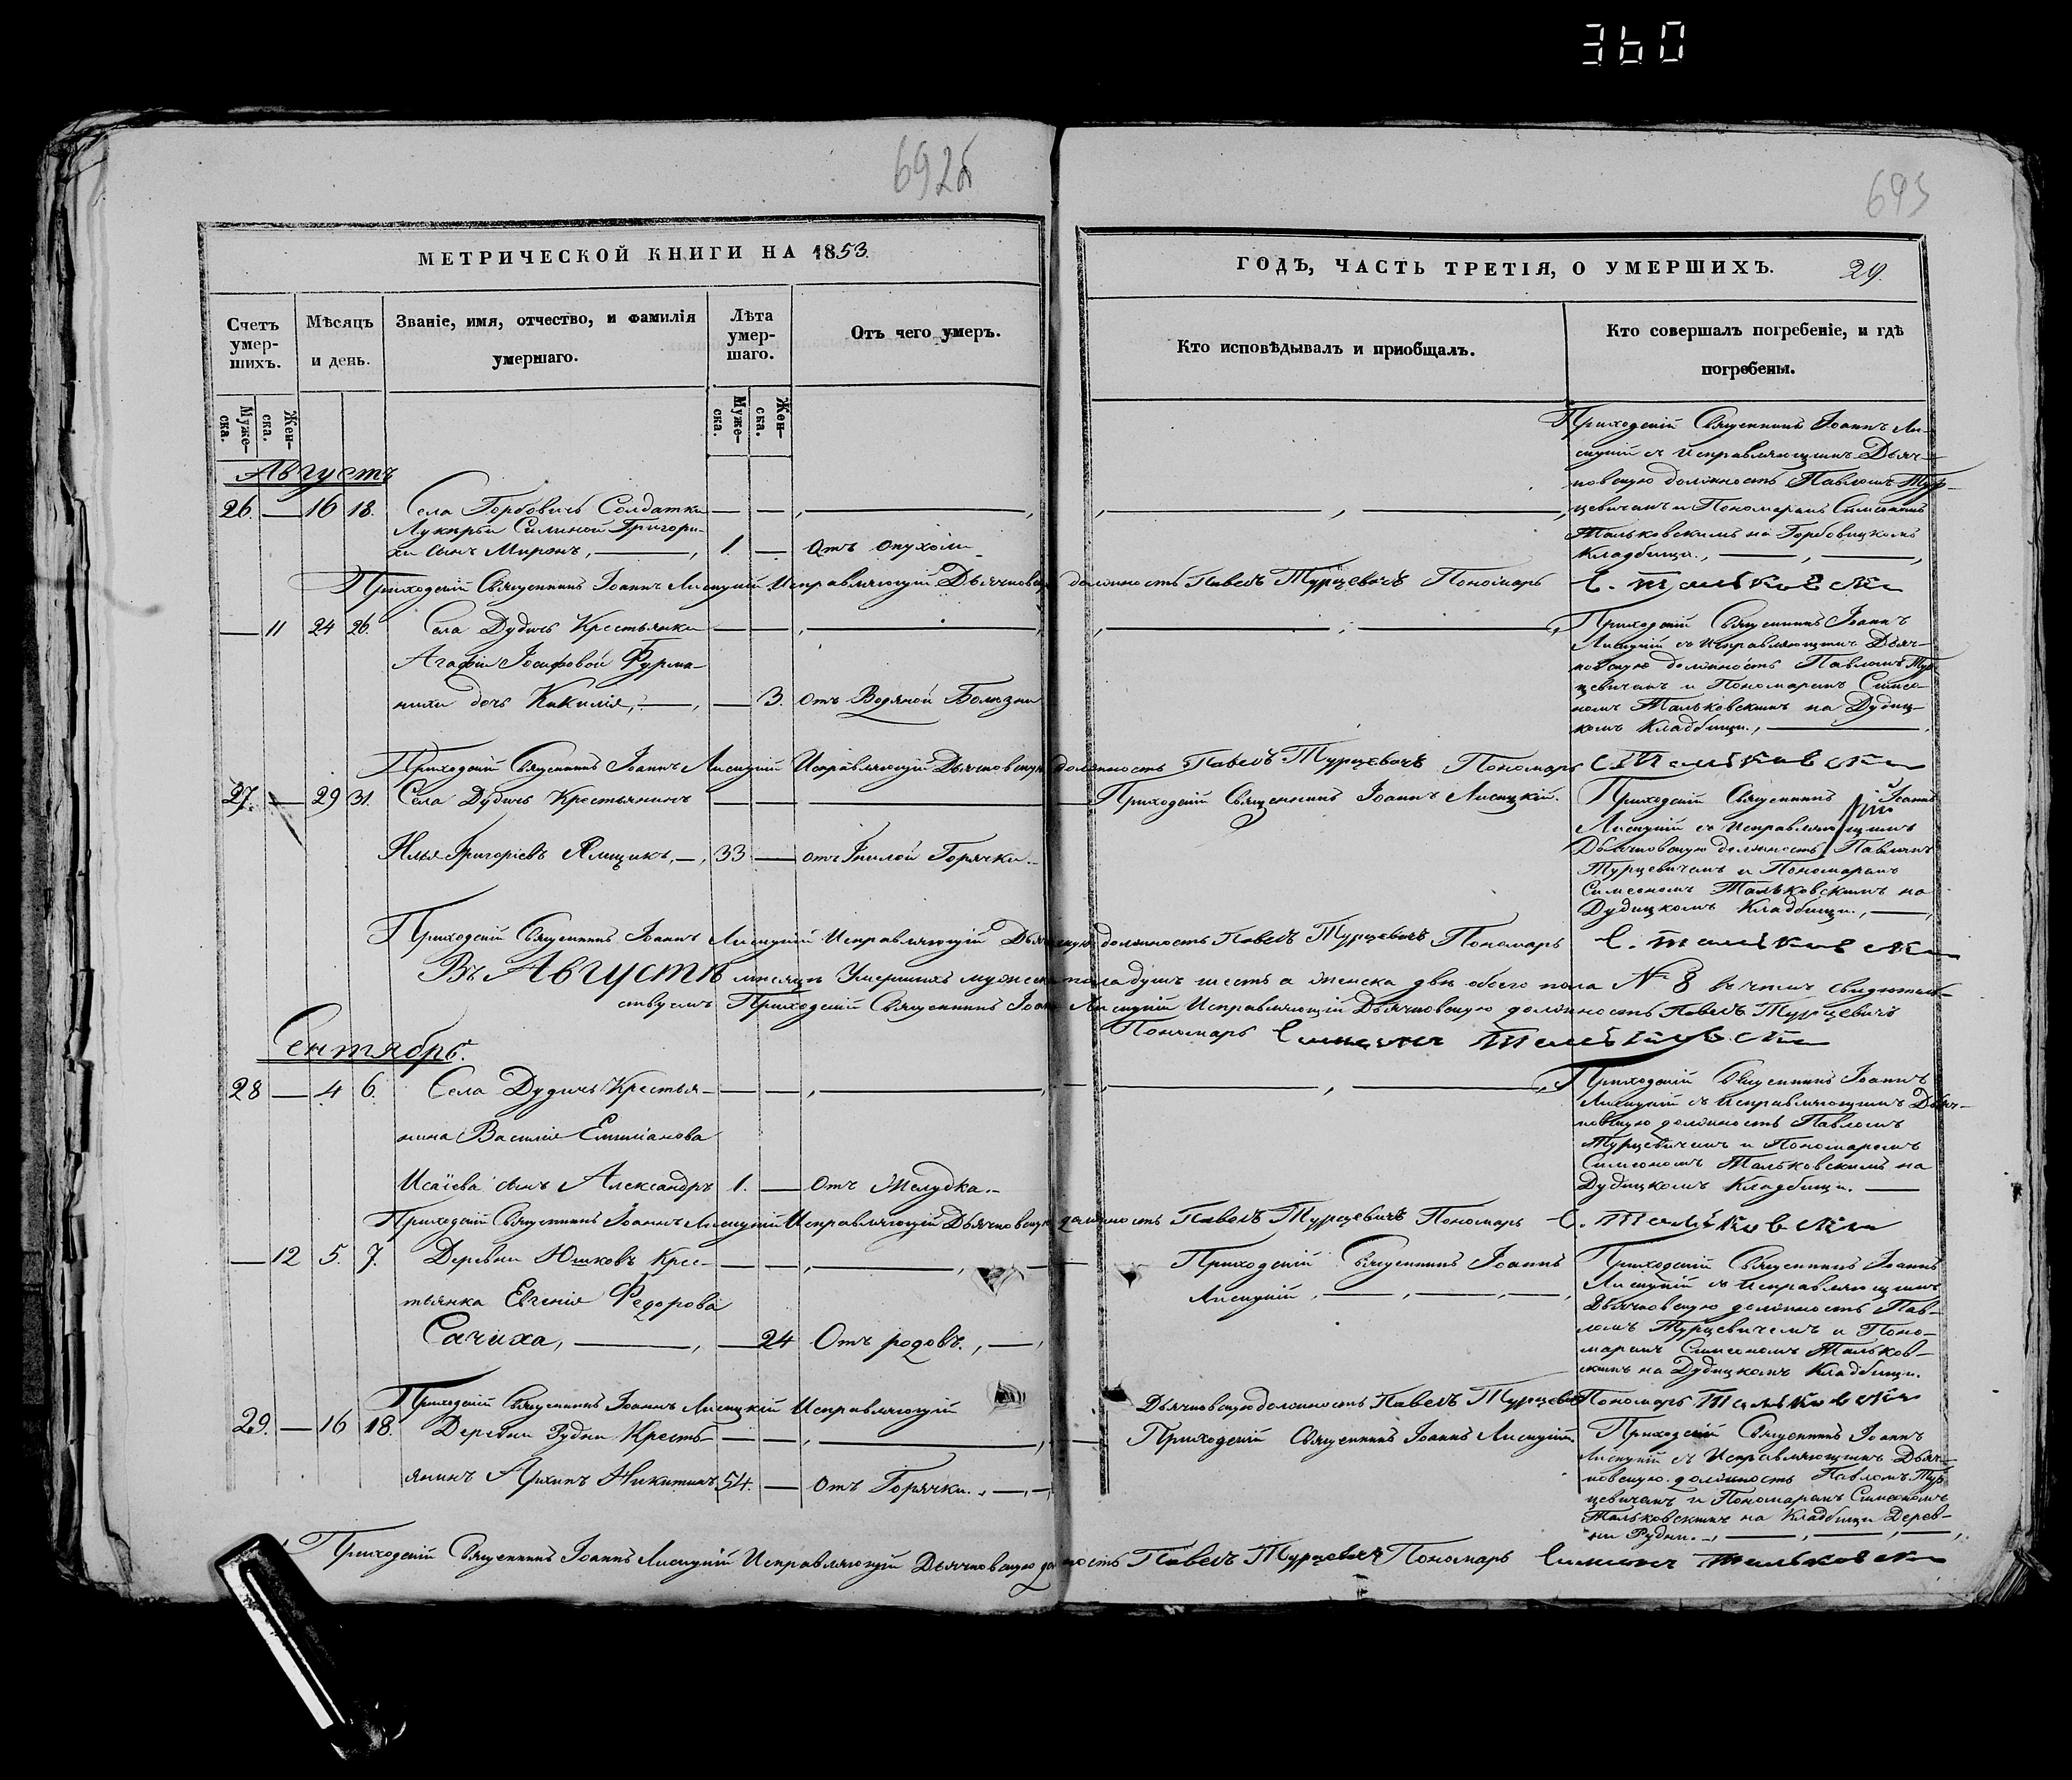 360
692б
693
МЕТРИЧЕСКОЙ КНИГИ НА 1853.
Счетъ умер-шихъ.
Мѣсяцъ и день.
Званіе, имя, отчество, и фамилія умершаго.
Лѣта умер-шаго.
Отъ чего умеръ.
Муже-ска.
Жен-ска.
Муже-ска.
Жен-ска.
Августъ
26. — 16 18. Села Горбовичъ Солдатки
Григори-
хи сынъ Миронъ, 1. — Отъ опухоли
Приходскій Священникъ Іоаннъ Лисицкій Исправляющій Дьячковскую должность Павелъ Турцевичъ Пономарь С. Тальковскій
— 11 24 26. Села Дудичъ Крестьянки
Агафіи Іосифовой Фурма-
нихи дочь Кикилія, — 3. Отъ Водяной Болѣзни
Приходскій Священникъ Іоаннъ Лисицкій Исправляющій Дьячковскую должность Павелъ Турцевичъ Пономарь С. Тальковскій
27. — 29 31. Села Дудичъ Крестьянинъ
Илья Григоріевъ Ямщикъ, 33 — отъ Гнилой Горячки.
Приходскій Священникъ Іоаннъ Лисицкій Исправляющій должность Павелъ Турцевичъ Пономарь С. Тальковскій
Въ Августѣ мѣсяцѣ Умершихъ мужеска пола душъ шесть а женска двѣ обоего пола № 8 въ чемъ свидѣтель-
ствуемъ Приходскій Священникъ Іоаннъ Лисицкій Исправляющій Дьячковскую должность Павелъ Турцевичъ
Пономарь Симеонъ Тальковскій
Сентябрь.
28 — 4 6. Села Дудичъ Крестья-
нина Василія Емиліанова
Исаіева сынъ Александръ 1. — Отъ Желудка.
Приходскій Священникъ Іоаннъ Лисицкій Исправляющій Дьячковскую должность Павелъ Турцевичъ Пономарь С. Тальковскій
— 12 5. 7. Деревни Юшковъ Крес-
тьянка Евгенія Федорова
Сачиха, — 24 Отъ родовъ.
Приходскій Священникъ Іоаннъ Лисицкій Исправляющій Дьячковскую должность Павелъ Турцевичъ Пономарь Тальковскій
29. — 16 18. Деревни Рудни Кресть-
янинъ Архипъ Никитинъ 54. — Отъ Горячки.
Приходскій Священникъ Іоаннъ Лисицкій Исправляющій Дьячковскую должность Павелъ Турцевичъ Пономарь Симеонъ Тальковскій
ГОДЪ, ЧАСТЬ ТРЕТІЯ, О УМЕРШИХЪ. 29.
Кто исповѣдывалъ и пріобщалъ.
Кто совершалъ погребеніе, и гдѣ погребены.
Приходскій Священникъ Іоаннъ Ли-
сицкій съ Исправляющимъ Дьяч-
ковскую должность Павломъ Тур-
цевичемъ и Пономаремъ Симеономъ
Тальковскимъ на Горбовицкомъ
Кладбищи.
Приходскій Священникъ Іоаннъ
Лисицкій съ Исправляющимъ Дьяч-
ковскую должность Павломъ Тур-
цевичемъ и Пономаремъ Симео-
номъ Тальковскимъ на Дудиц-
комъ Кладбищи.
Приходскій Священникъ Іоаннъ Лисицкій.
Приходскій Священникъ Іоаннъ
Лисицкій съ Исправляющимъ
Дьячковскую должность Павломъ
Турцевичемъ и Пономаремъ
Симеономъ Тальковскимъ на
Дудицкомъ Кладбищи.
Приходскій Священникъ Іоаннъ
Лисицкій съ Исправляющимъ Дьяч-
ковскую должность Павломъ
Турцевичемъ и Пономаремъ
Симеономъ Тальковскимъ на
Дудицкомъ Кладбищи.
Приходскій Священникъ Іоаннъ
Лисицкій
Приходскій Священникъ Іоаннъ
Лисицкій съ Исправляющимъ
Дьячковскую должность Пав-
ломъ Турцевичемъ и Поно-
маремъ Симеономъ Тальков-
скимъ на Дудицкомъ Кладбищи.
Приходскій Священникъ Іоаннъ Лисицкій
Приходскій Священникъ Іоаннъ
Лисицкій съ Исправляющимъ Дьяч-
ковскую должность Павломъ Тур-
цевичемъ и Пономаремъ Симеономъ
Тальковскимъ на Кладбищи Дерев-
ни Рудни.